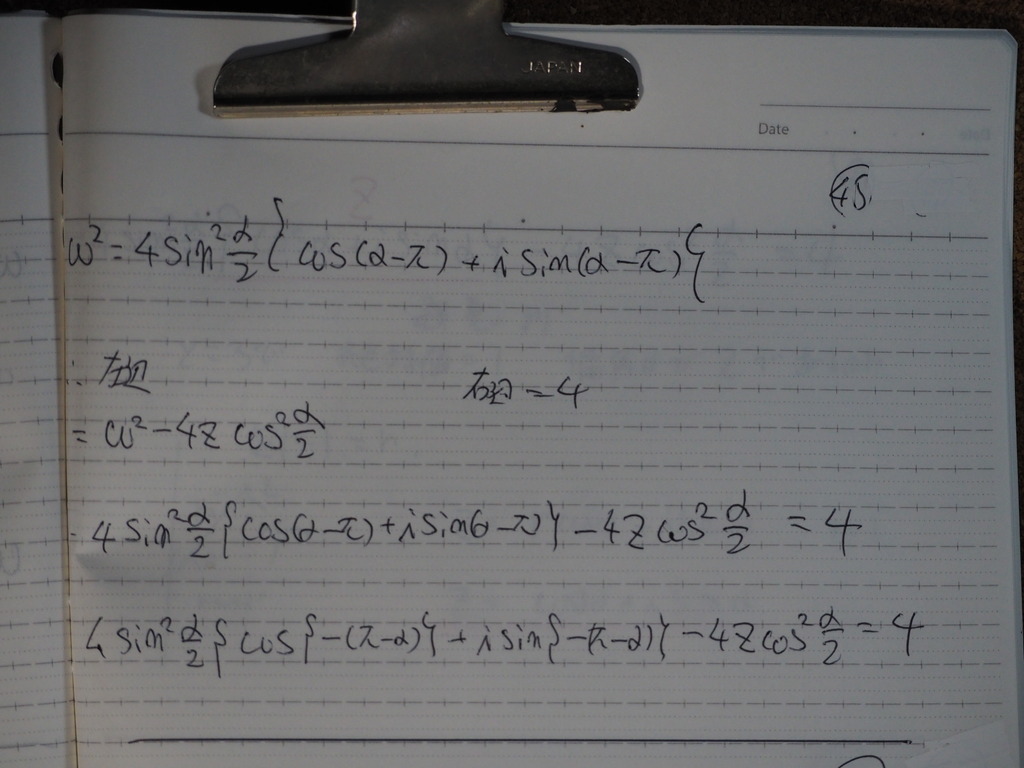 JAPAN
Date
45
ω² = 4 sin² α/2 { cos(α-π) + i sin(α-π) }
∴ 左辺
右辺 = 4
= ω² - 4z cos² α/2
4 sin² α/2 { cos(α-π) + i sin(α-π) } - 4z cos² α/2 = 4
4 sin² α/2 { cos{-(π-α)} + i sin{-(π-α)} - 4z cos² α/2 = 4